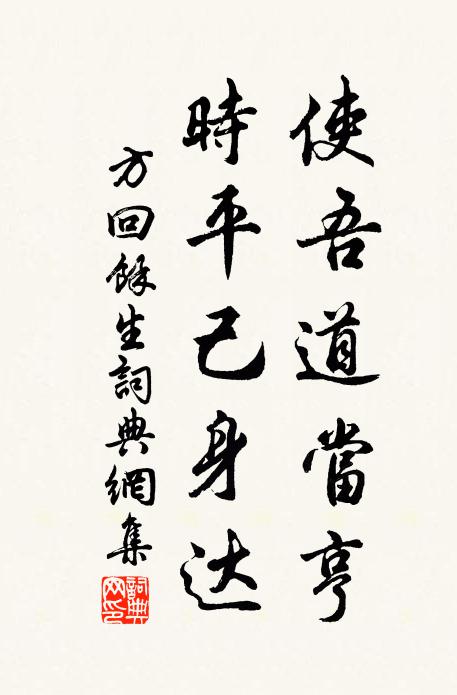 使吾道當亨
時平己身达
方回餘生詞典網集
詞典网印